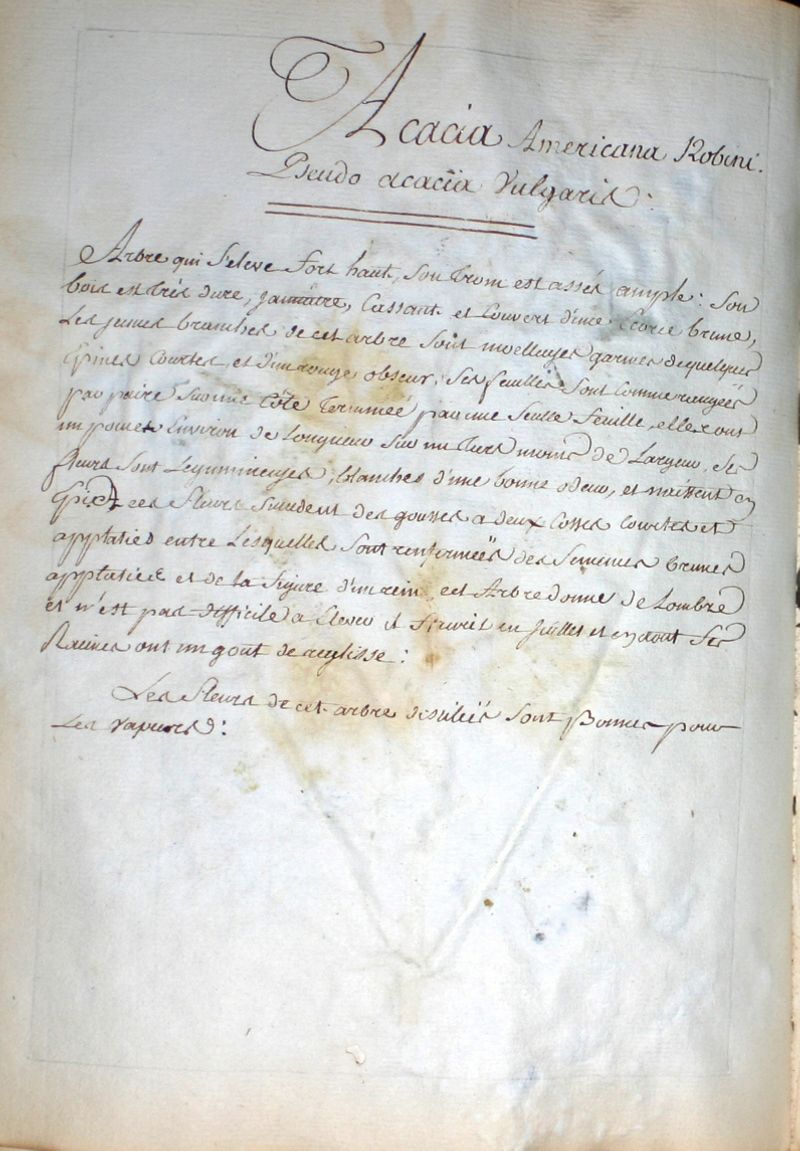 Acacia Americana Robini.
Pseudo acacia Vulgaris:
Arbre qui S'eleve fort haut, Son Trom est assés ample: Son
bois est trés dure, jaunatre, Cassant et Couvert d'une Ecorce brune,
Les jeunes branches de cet arbre Sont moelleuses garnies de quelques
Epines Courtes, et d'un rouge obscur, Ses feuilles Sont Comme rangées
par paire Sur une Côte Terminée par une Seulle feuille, elles ont
un pouce Environ de Longueur Sur un Tiers moins de Largeur, Ses
fleurs Sont Legumineuses, blanches d'une bonne odeur, et naissent en
Epics ces fleurs Succedent des gousses a deux Cosses Courtes et
applaties entre Lesquelles Sont renformées des Semences brunes
applaties et de la figure d'un rein cet Arbre donne de Lombre
et n'est pas difficile a Elever il fleurit en Juillet et en aout Ses
Racines ont un gout de reglisse:
Les fleurs de cet arbre Sont Bonnes pour
Les vapeurs: